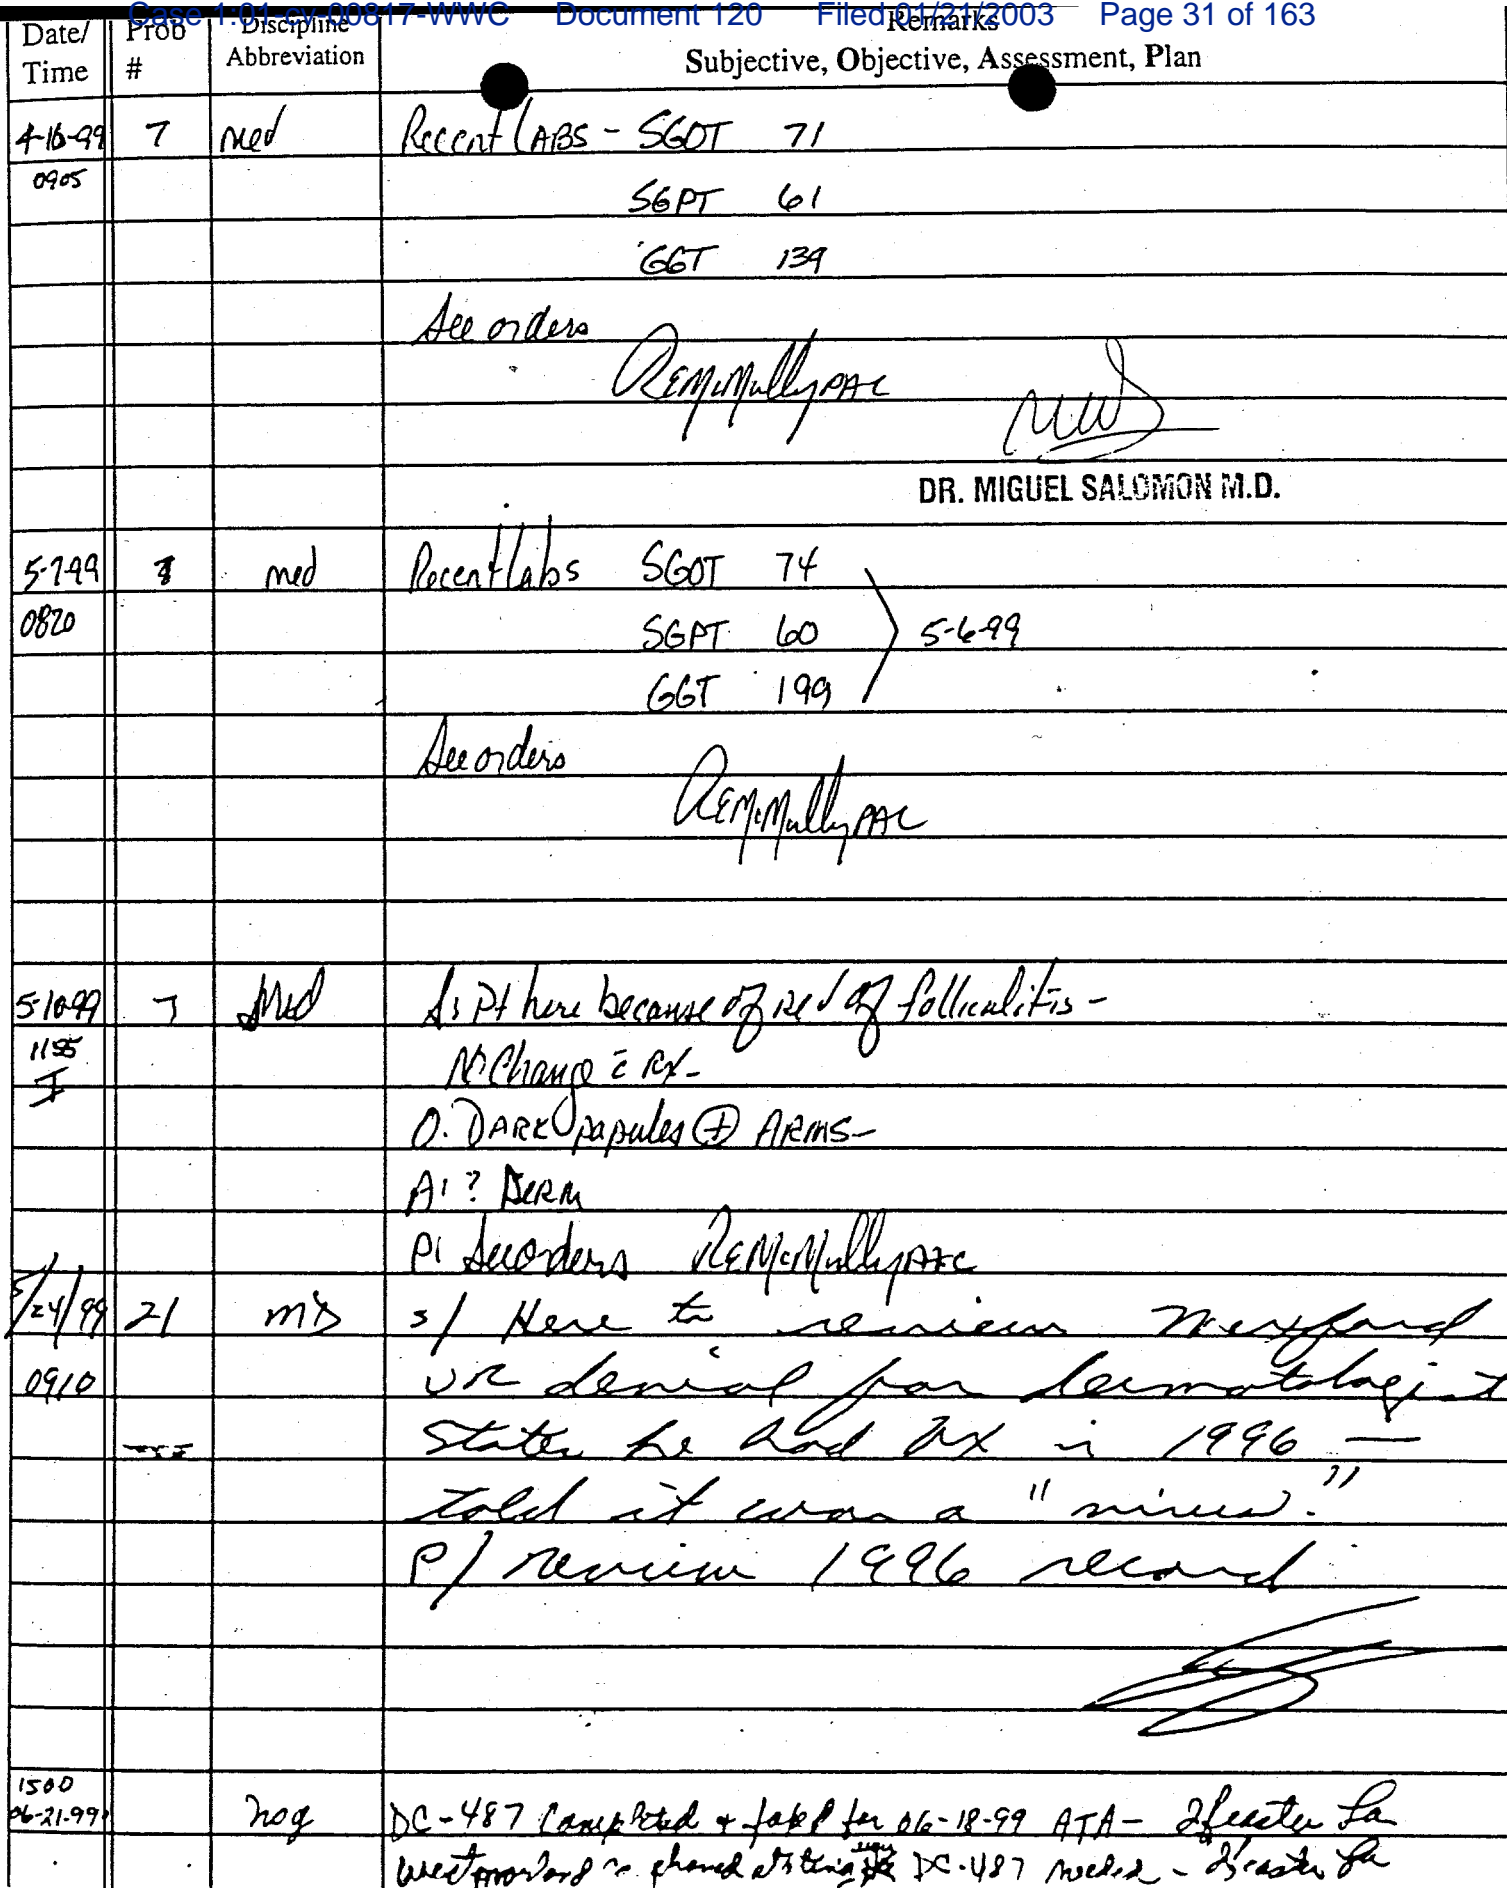 Case 1:01-cv-00817-WWC Document 120 Filed 01/21/2003 Page 31 of 163
Date/ Time Prob # Discipline Abbreviation Remarks
Subjective, Objective, Assessment, Plan
4-16-99 7 med Recent LABS - SGOT 71
0905 SGPT 61
GGT 139
See orders
REMcMully PAC
DR. MIGUEL SALOMON M.D.
5-7-99 med Recent labs SGOT 74
0820 SGPT 60 5-6-99
GGT 199
See orders
REMcMully PAC
5-10-99 7 Med S: Pt here because of folliculitis -
1155 No Change c̄ Rx -
O: DARK papules ⊕ ARMS -
A: ? DERM
P: See orders REMcMully PAC
5/24/99 21 MD s/ Here to review Wexford
0910 UR denial for dermatologist
States he had Bx in 1996 —
told it was a "virus."
P/ review 1996 record
1500
06-21-99 DC-487 Completed + for 06-18-99 ATA -
DC-487 needed -